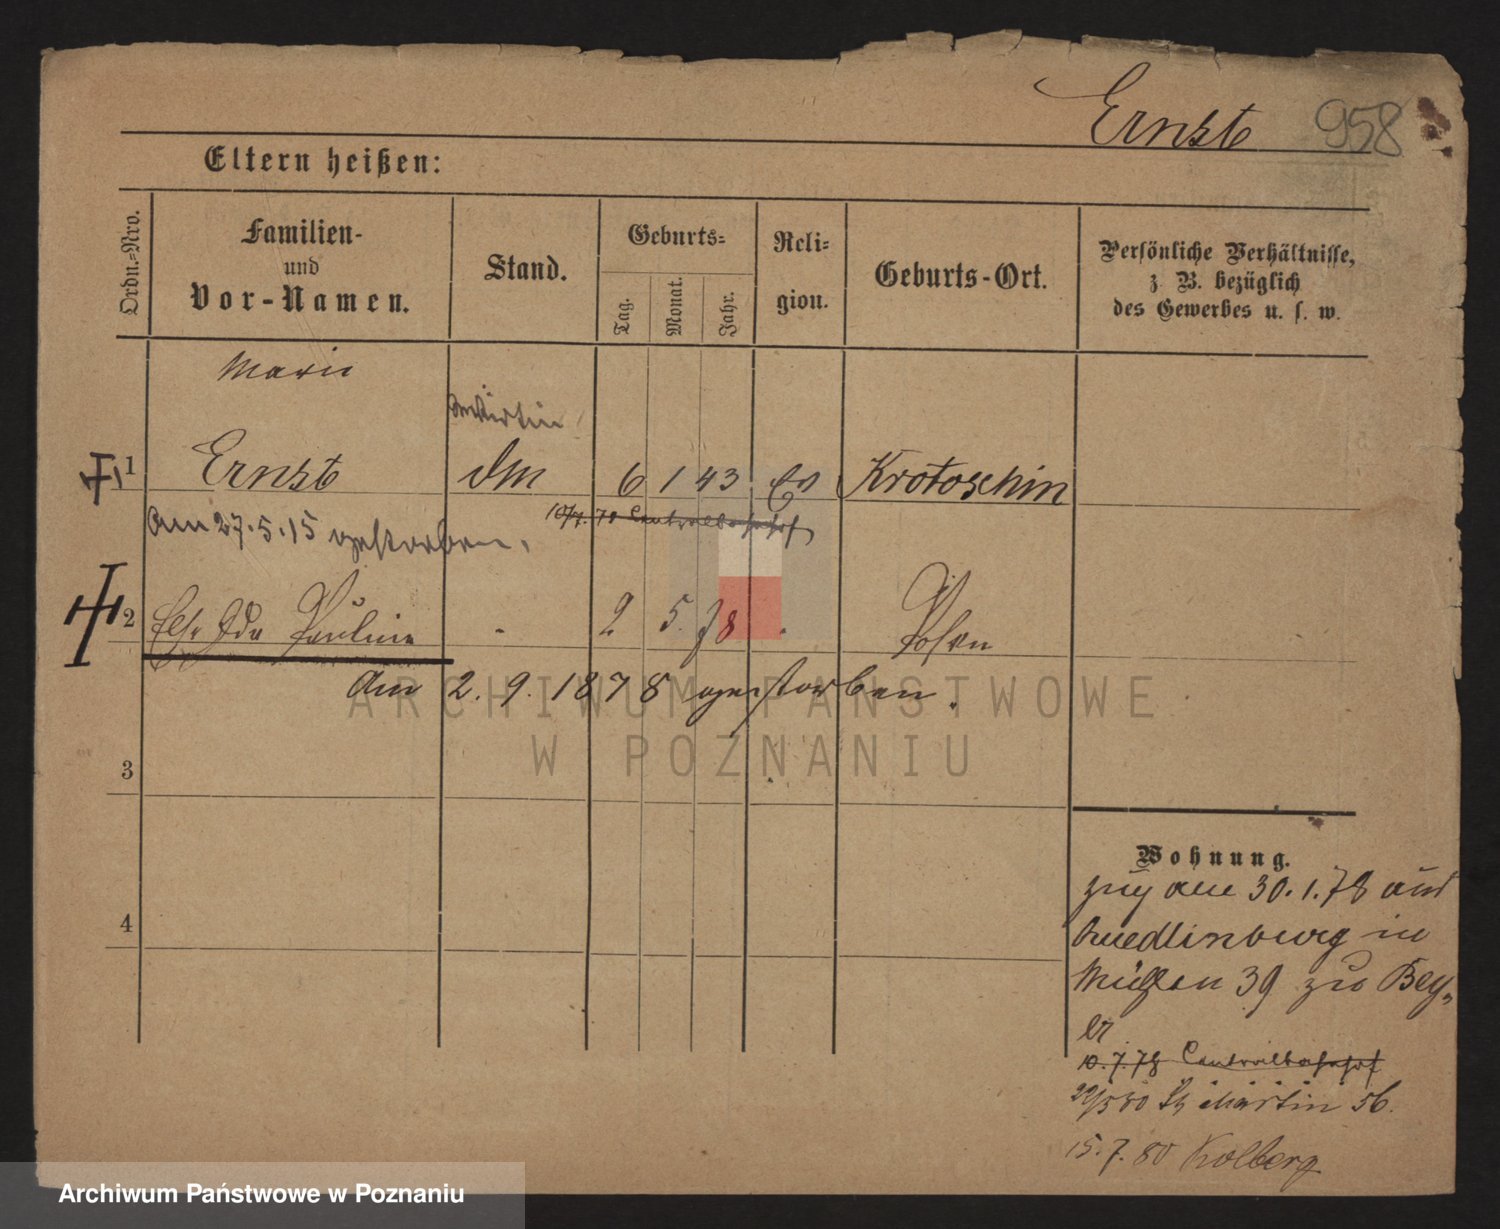 Ernst 958
Eltern heißen:
Ordn.=Nro.
Familien-
und
Vor-Namen.
Stand.
Geburts=
Tag.
Monat.
Jahr.
Reli=
gion.
Geburts-Ort.
Persönliche Verhältnisse,
z. B. bezüglich
des Gewerbes u. s. w.
Marie
Wirtin
1 Ernst 6 1 43 Ev Krotoschin
10/7. 78 Centralbahnhof
Am 27.5.15 gestorben.
2 Ida Pauline 2 5. 78 Posen
Am 2. 9. 1878 gestorben.
ARCHIWUM PAŃSTWOWE
W POZNANIU
3
4
Wohnung.
zug am 30.1.78 aus
Quedlinburg in
Mühlen 39 zu Bey=
er
10.7.78 Centralbahnhof
22/5 80 St Martin 56.
15.7.80 Kolberg
Archiwum Państwowe w Poznaniu